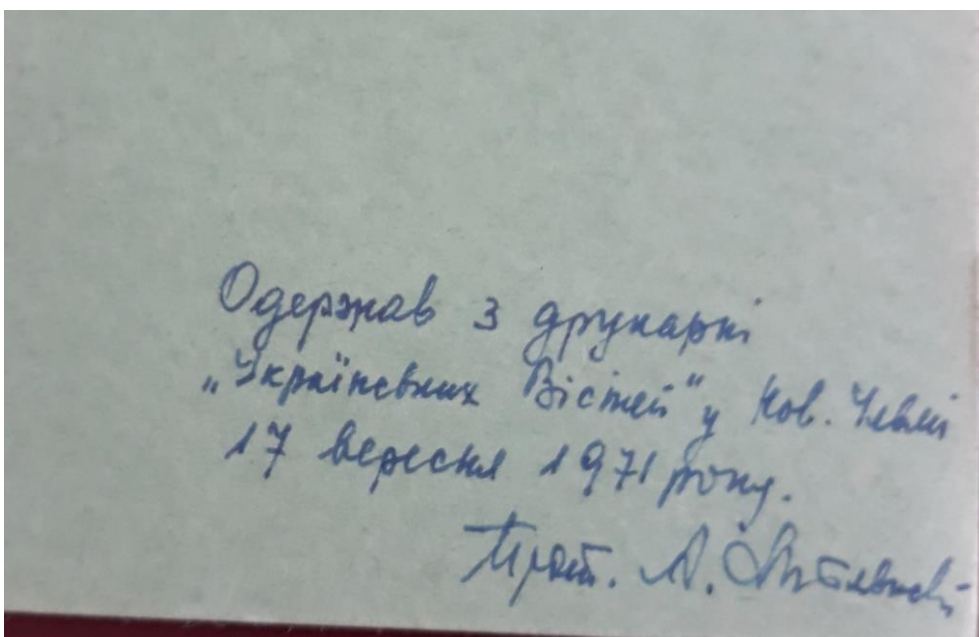 Одержав з друкарні
„Українських Вістей" у Нов. Ульмі
17 вересня 1971 року.
Прот. А.